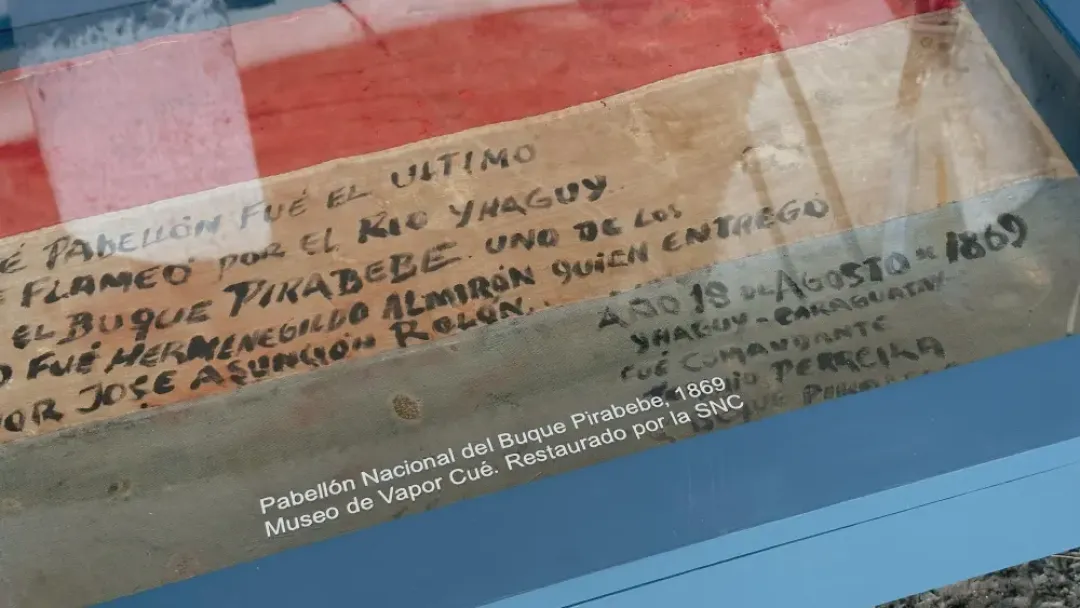 É PABELLÓN FUÉ EL ULTIMO
FLAMEÓ POR EL RIO YHAGUY
EL BUQUE PIRABEBE UNO DE LOS
FUÉ HERMENEGILDO ALMIRÓN QUIEN ENTREGO
OR JOSE ASUNCIÓN ROLÓN.
AÑO 18 DE AGOSTO DE 1869
YHAGUY-CARAGUATAY
FUÉ COMANDANTE
PERREIRA
BUQUE
Pabellón Nacional del Buque Pirabebe, 1869
Museo de Vapor Cué. Restaurado por la SNC